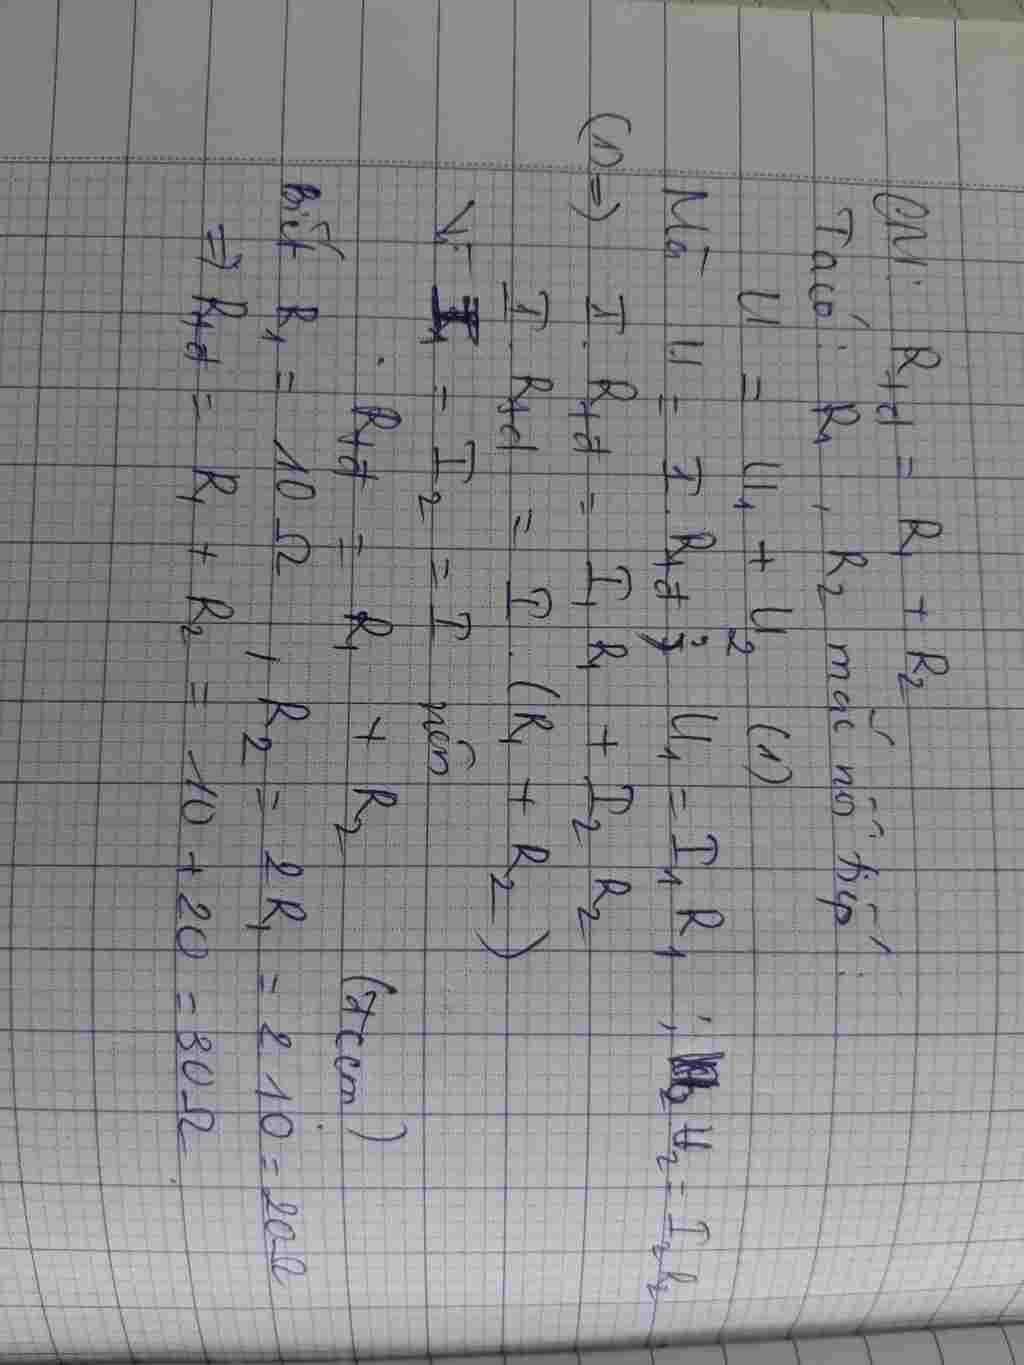 CM: Rtđ = R1 + R2
Ta có: R1, R2 mắc nối tiếp:
U = U1 + U2 (1)
Mà U = I.Rtđ; U1 = I1R1, U2 = I2R2
(1) => I.Rtđ = I1R1 + I2R2
I.Rtđ = I.(R1 + R2)
Vì I1 = I2 = I nên
Rtđ = R1 + R2 (đccm)
biết R1 = 10Ω, R2 = 2R1 = 2.10 = 20Ω
=> Rtđ = R1 + R2 = 10 + 20 = 30Ω